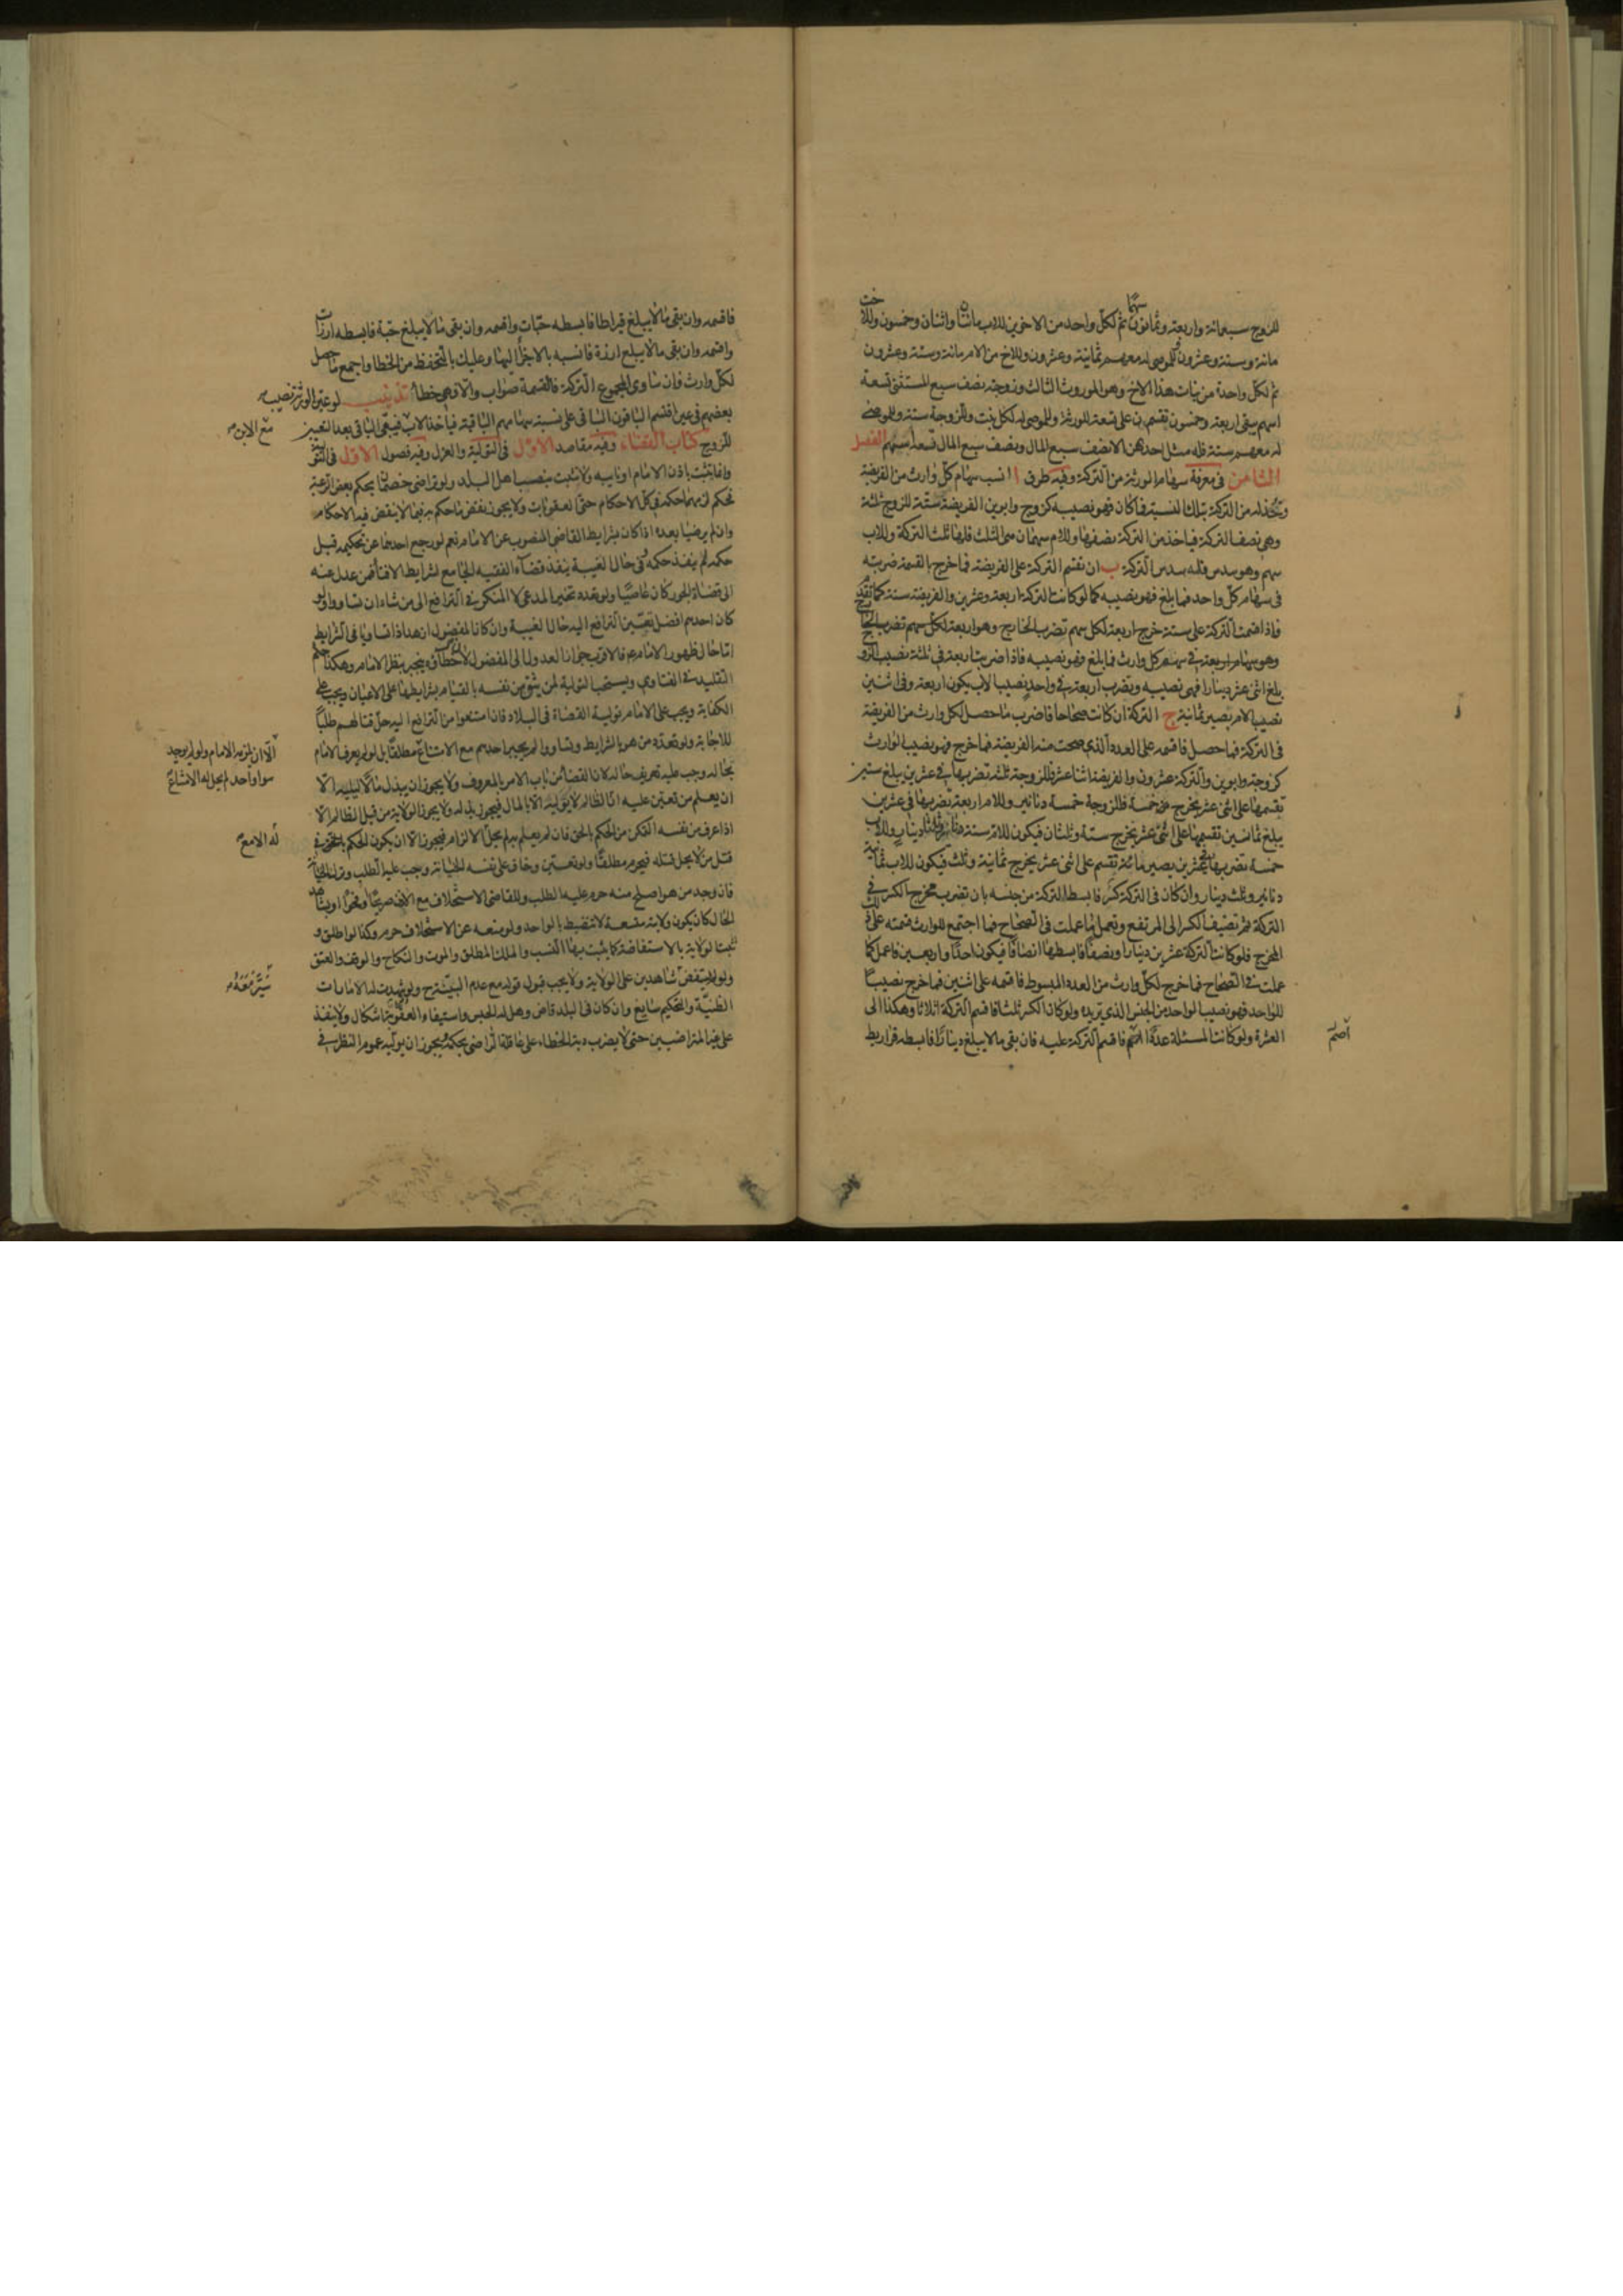 للزوج سبعمائة واربعة وثمانون سهمًا ثم لكل واحد من الاخوين للاب مائتان واثنان وخمسون وللاخت
مائة وستة وعشرون للموصى له معهم ثمانية وعشرون وللاخ من الام مائة وستة وعشرون
ثم لكل واحدة من بنات هذا الاخ وهو الموروث الثالث وزوجته نصف سبع المستثنى تسعة
اسهم يبقى اربعة وخمسون تقسم بين على تسعة للورثة وللموصى له لكل بنت وللزوجة ستة وللموصى
له معهم ستة فله مثل احدهن الا نصف سبع المال ونصف سبع المال تسعة اسهم الفصل
الثامن في معرفة سهام الورثة من التركة وفيه طرق ا انسب سهام كل وارث من الفريضة
وتخذ له من التركة بتلك النسبة فما كان فهو نصيبه كزوج وابوين الفريضة ستة للزوج ثلثة
وهي نصف التركة فياخذ من التركة نصفها وللام سهمان هي الثلث فلها ثلث التركة وللاب
سهم وهو سدس فله سدس التركة ب ان تقسم التركة على الفريضة فما خرج بالقسمة ضربته
في سهام كل واحد فما بلغ فهو نصيبه كما لو كانت التركة اربعة وعشرين والفريضة ستة كما تقدم
فاذا قسمت التركة على ستة خرج اربعة لكل سهم تضرب الخارج وهو اربعة لكل سهم تضرب الخارج
وهو سهام اربعة في سهم كل وارث فما بلغ فهو نصيبه فاذا ضربت اربعة في ثلثة نصيب الزوج
بلغ اثنى عشر دينارا فهي نصيبه وتضرب اربعة في واحد نصيب الاب يكون اربعة وفي اثنين
نصيب الام يصير ثمانية ج التركة ان كانت صحاحا فاضرب ما حصل لكل وارث من الفريضة
في التركة فما حصل فاقسمه على العدد الذي صحت منه الفريضة فما خرج فهو نصيب الوارث
كزوجة وابوين والتركة عشرون والفريضة اثنا عشر فللزوجة ثلثة تضربها في عشرين يبلغ ستين
تقسمها على اثنى عشر يخرج خمسة فللزوجة خمسة دنانير وللام اربعة تضربها في عشرين
يبلغ ثمانين تقسمها على اثنى عشر يخرج ستة وثلثان فيكون للام ستة دنانير وثلثا دينار وللاب
خمسة تضربها في عشرين يصير مائة تقسم على اثنى عشر يخرج ثمانية وثلث فيكون للاب ثمانية
دنانير وثلث دينار وان كان في التركة كسر فابسط التركة من جنسه بان تضرب مخرج الكسر في
التركة ثم تضيف الكسر الى المرتفع وتعمل ما عملت في الصحاح فما اجتمع للوارث قسمته على ذلك
المخرج فلو كانت التركة عشرين دينارا ونصفا فابسطها انصافا فيكون احدًا واربعين فاعمل كما
عملت في الصحاح فما خرج لكل وارث من العدد المبسوط فاقسمه على اثنين فما خرج نصيبًا
للواحد فهو نصيب الواحد من الجنس الذي تريده ولو كان الكسر ثلثا فاقسم التركة اثلاثا وهكذا الى
العشرة ولو كانت المسئلة عددًا اصم فاقسم التركة عليه فان بقى ما لا يبلغ دينارًا فابسطه قراريط
اصم
فاقسمه وان بقى ما لا يبلغ قيراطا فابسطه حبّات واقسمه وان بقى ما لا يبلغ حبّة فابسطه ارزّات
واقسمه وان بقى ما لا يبلغ ارزة فانسبه بالاجزاء اليها وعليك بالتحفظ من الخطا واجمع ما حصل
لكل وارث فان ساوى المجموع التركة فالقسمة صواب والا فهي خطا تذنيب لو عيّن الورثة نصيب
بعضهم في عين اقتسم الباقون الباقي على نسبة سهامهم الباقية فياخذ الاب فيبقى الباقي بعد تعيين
مع الابن
للزوج كتاب القضاء وفيه مقاصد الاول في التولية والعزل وفيه فصول الاول في التولية
وانما تثبت باذن الامام او نايبه ولا تثبت بنصب اهل البلد ولو تراضى خصمان بحكم بعض الرعية
فحكم لزمهما حكمه في كل الاحكام حتى العقوبات ولا يجوز نقض ما حكم به فيما لا ينقض فيه الاحكام
وان لم يرضيا بعده اذا كان بشرايط القاضي المنصوب عن الامام نعم لو رجع احدهما عن تحكيمه قبل
حكمه لم ينفذ حكمه وفي حال الغيبة ينفذ قضاء الفقيه الجامع لشرايط الافتاء فمن عدل عنه
الى قضاة الجور كان عاصيًا ولو تعدد تخير المدعي لا المنكر في الترافع الى من شاء ان تساووا ولو
كان احدهم افضل تعيّن الترافع اليه حال الغيبة وان كان المفضول ازهد اذا تساويا في الشرايط
امّا حال ظهور الامام ع فالاقرب جواز العدول الى المفضول لان خطأه ينجبر بنظر الامام وهكذا حكم
التقليد في الفتاوى ويستحب التولية لمن يثق من نفسه بالقيام بشرايطها على الاعيان ويجب على
الكفاية ويجب على الامام تولية القضاة في البلاد فان امتنعوا من الترافع اليه حل قتالهم طلبًا
للاجابة ولو تعدد من هو بالشرايط وتساووا لم يجبر احدهم مع الامتناع مطلقًا بل لو لم يعرف الامام
الّا ان يلزمه الامام ولو لم يوجد
سوا واحد لم يحل له الامتناع
بحاله وجب عليه تعريف حاله لان القضاء من باب الامر بالمعروف ولا يجوز ان يبذل مالًا ليليه الّا
ان يعلم من تعين عليه ان الظالم لا يوليه الا بالمال فيجوز بذله ولا يجوز الولاية من قبل الظالم الّا
اذا عرف من نفسه التمكن من الحكم بالحق فان لم يعلم لم يحل الا الزام فيجوز الا ان يكون الحكم بالحق في
له الا مع
قتل من لا يحل قتله فيحرم مطلقًا ولو تعين وخاف على نفسه الخيانة وجب عليه الطلب وترك الخيانة
فان وجد من هو اصلح منه حرم عليه الطلب وللقاضي الاستخلاف مع الاذن صريحًا وفحوًا او بشاهد
الحال كان يكون ولايته متسعة لا تنضبط بالواحد ولو منعه عن الاستخلاف حرم وكذا لو اطلق و
تثبت الولاية بالاستفاضة كما يثبت بها النسب والملك المطلق والموت والنكاح والوقف والعتق
ولو لم يستفض شاهدين على الولاية ولا يجب قبول قوله مع عدم البينة وان شهدت له الامارات
سيّر معه
الظنيّة والتحكيم سايغ وان كان في البلد قاض وهل له الحبس واستيفاء العقوبة اشكال ولا ينفذ
على غير المتراضيين حتى لا يضرب دية الخطاء على عاقلة الراضي بحكمه ويجوز ان يوليه عموم النظر في